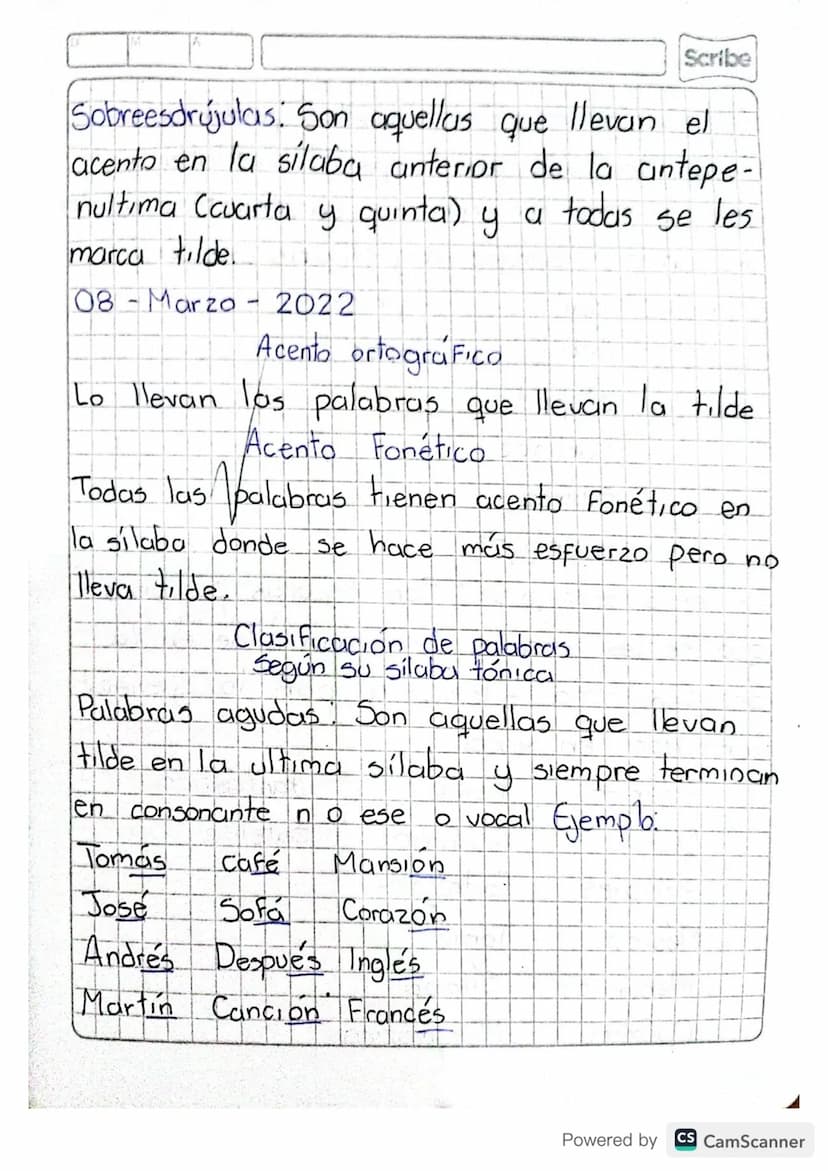 Scribe
Sobreesdrújulas: Son aquellas que llevan el
acento en la sílaba anterior de la antepe-
nultima (cuarta y quinta) y a todas se les
marca tilde.
08 - Marzo - 2022
Acento ortográfico
Lo llevan las palabras que llevan la tilde
Acento Fonético
Todas las palabras tienen acento Fonético en
la sílaba donde se hace más esfuerzo pero no
lleva tilde.
Clasificación de palabras
Según su sílaba tónica
Palabras agudas: Son aquellas que llevan
tilde en la ultima sílaba y siempre terminan
en consonante n o ese o vocal Ejemplo:
Tomás café Mansión
José Sofá Corazón
Andrés Después Inglés
Martín Canción Francés
Powered by CS CamScanner